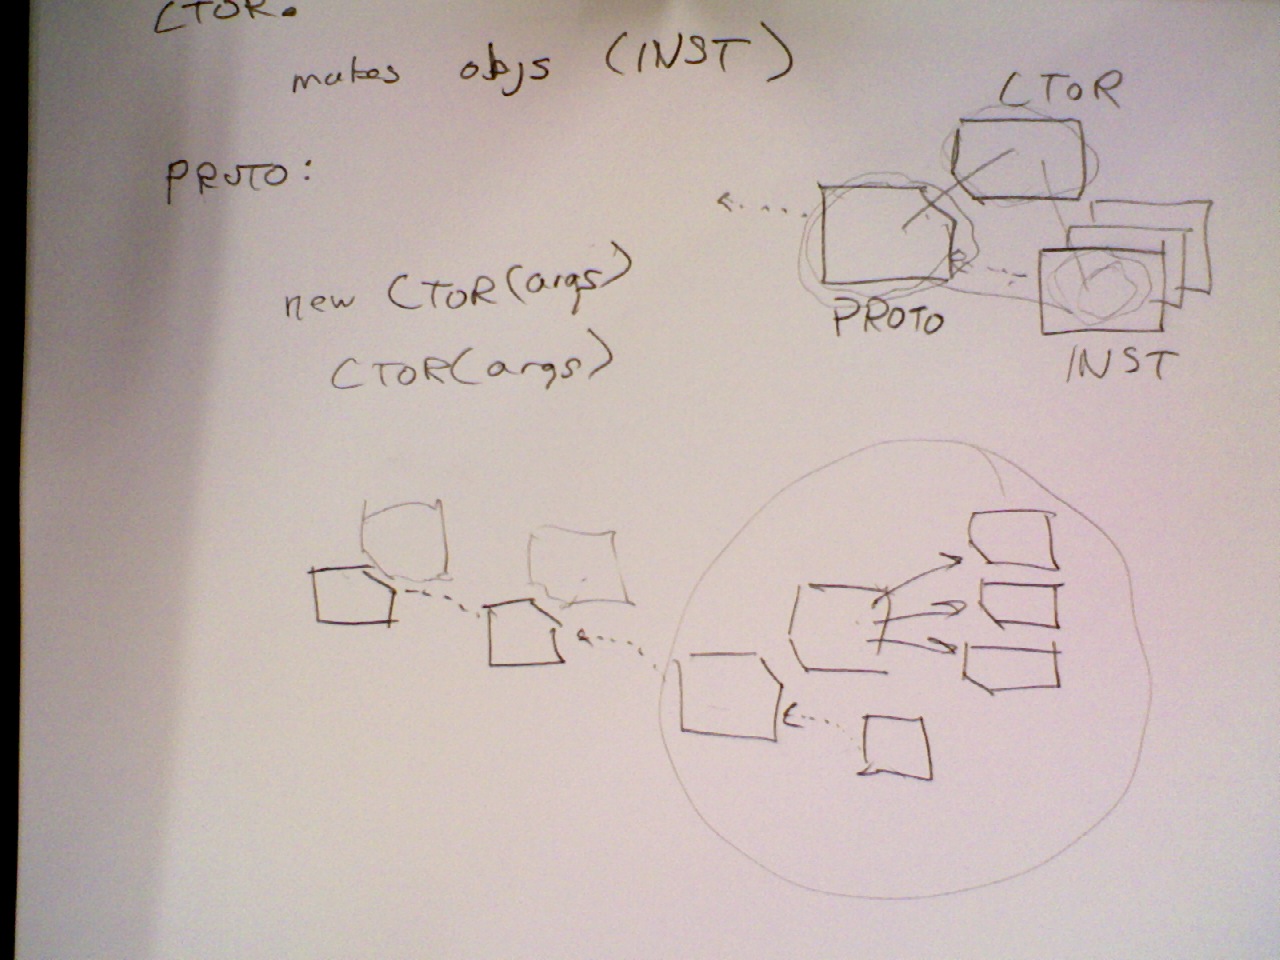 CTOR.
makes objs (INST)
PROTO:
new CTOR(args)
CTOR(args)
CTOR
PROTO
INST